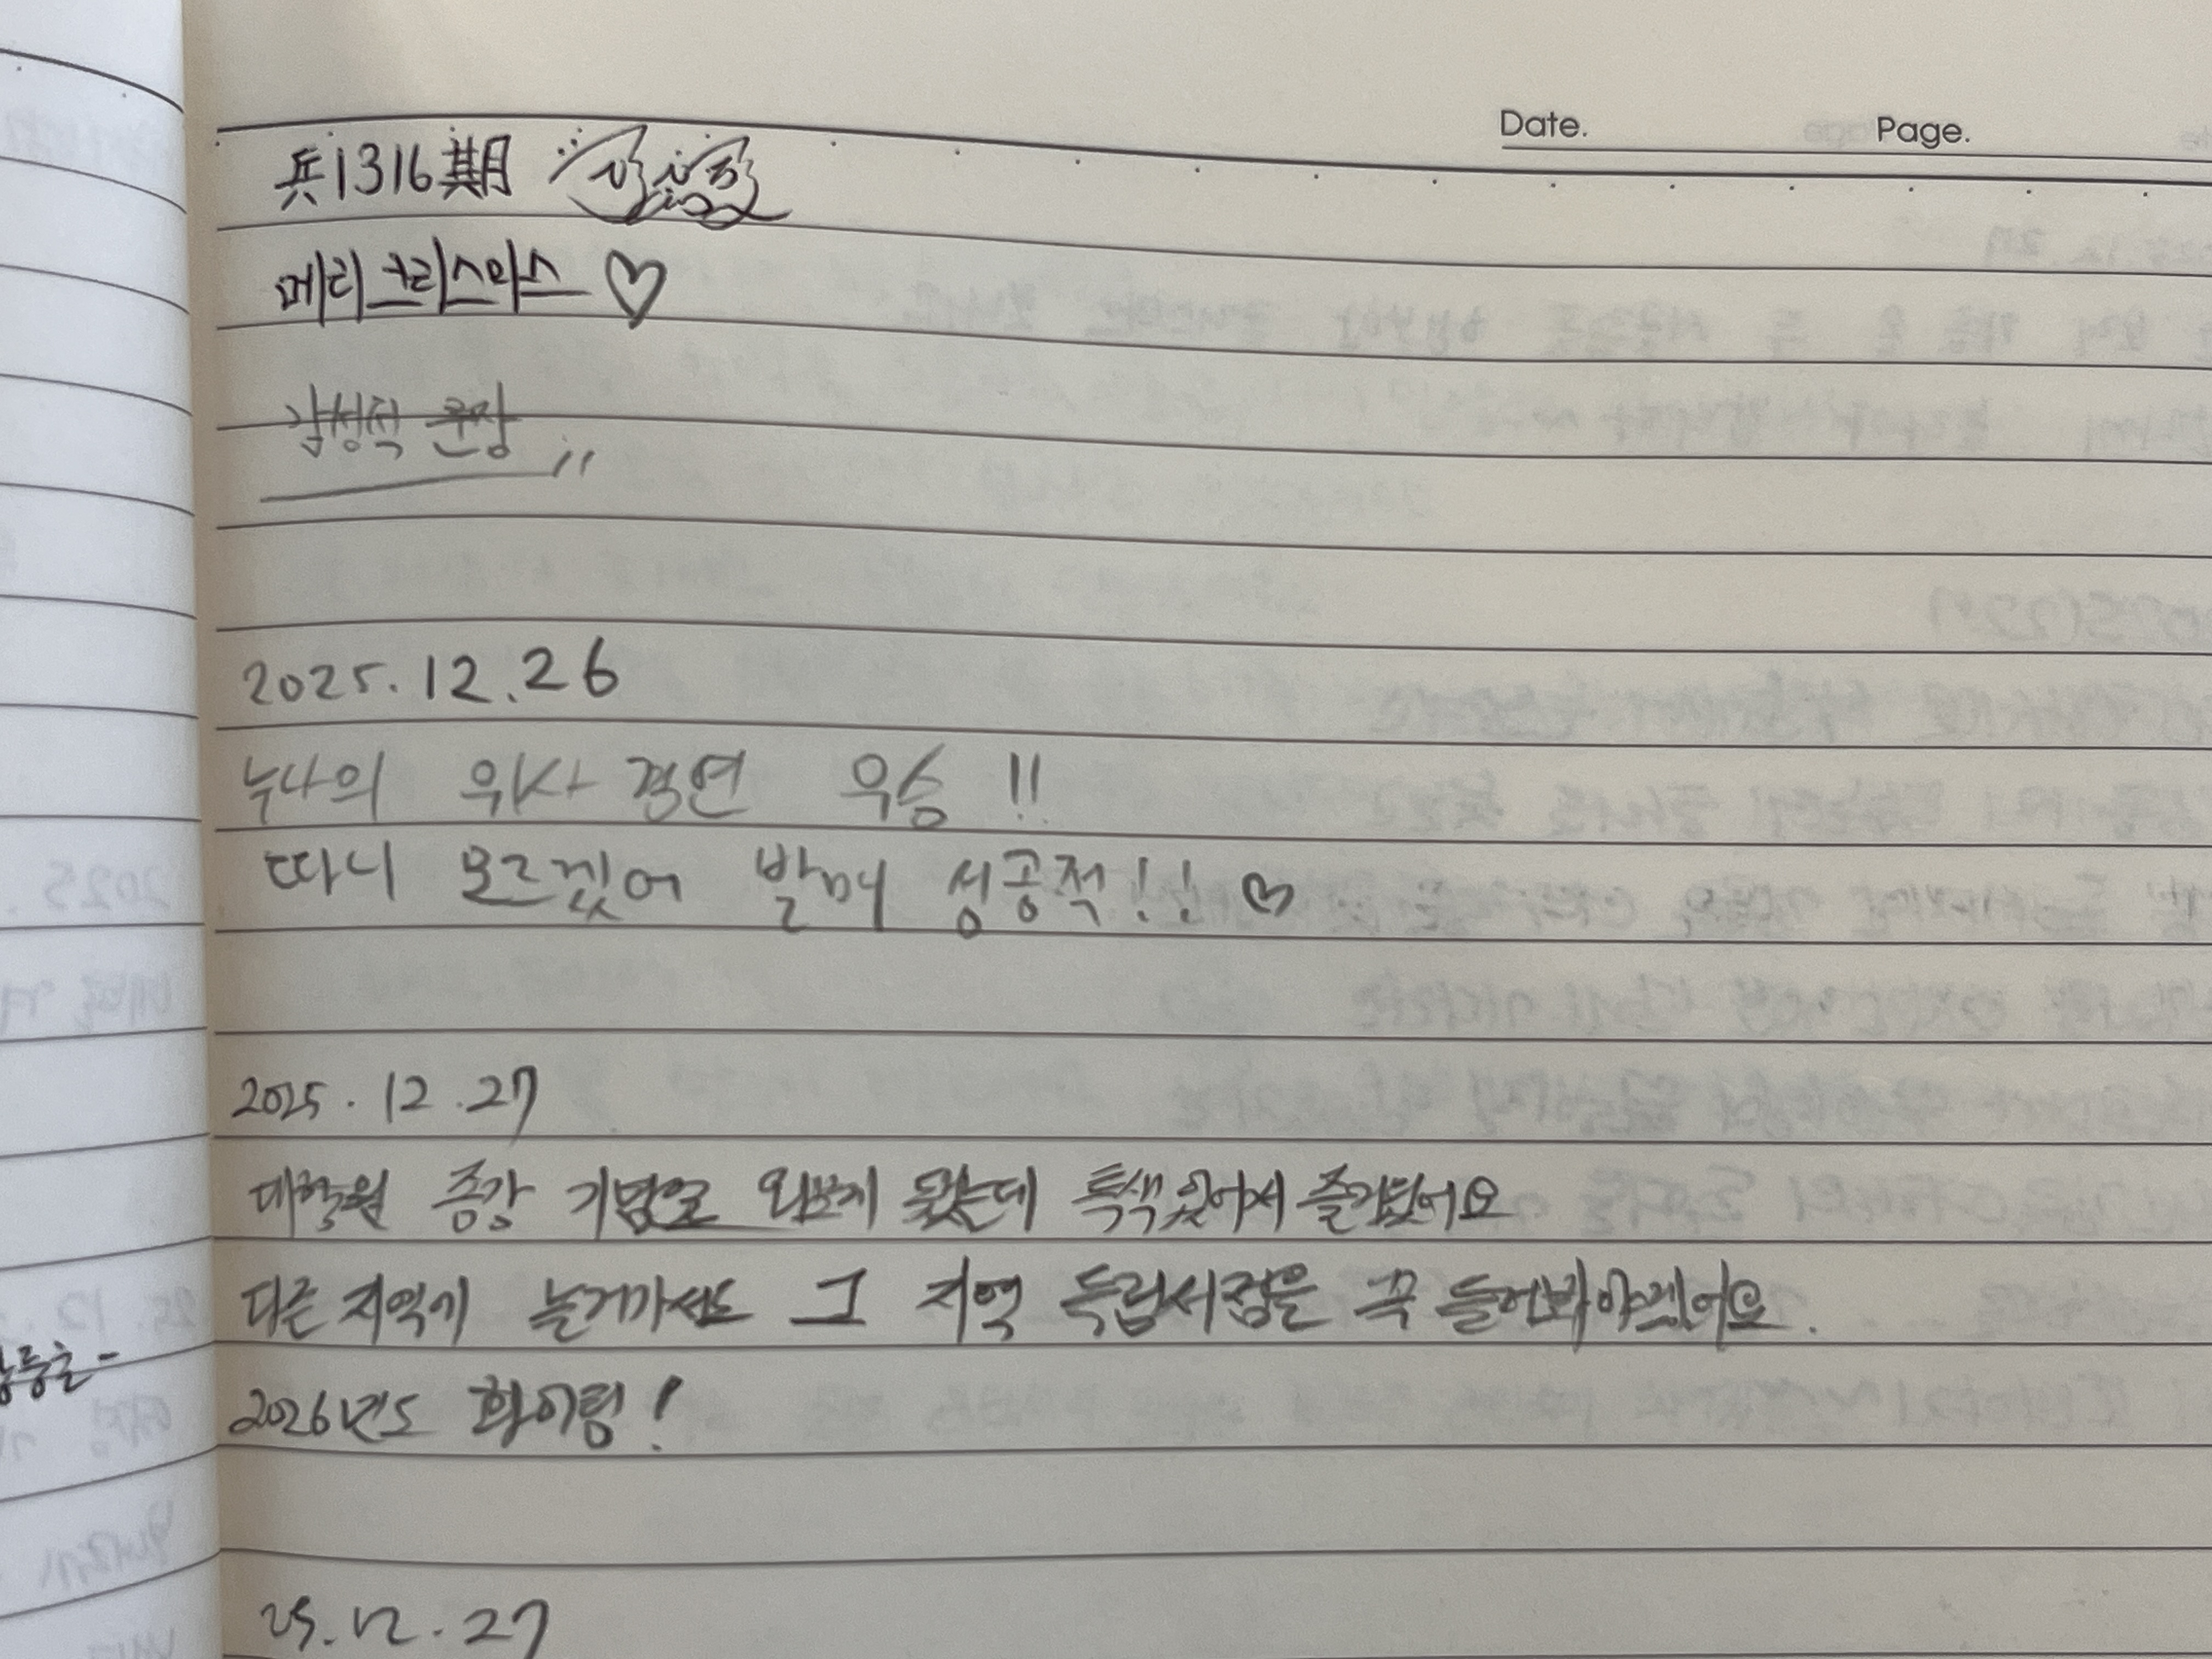 Date. Page.
兵1316期
메리크리스마스 ♡
감성적 문장
2025.12.26
누나의 위사 경연 우승!!
따니 모르겠어 발매 성공적!! ♡
2025.12.27
대학원 종강 기념으로 와보게 됐는데 특색있어서 즐거웠어요
다른 지역에 놀러가서도 그 지역 독립서점은 꼭 들어봐야겠어요.
2026년도 화이팅!
25.12.27